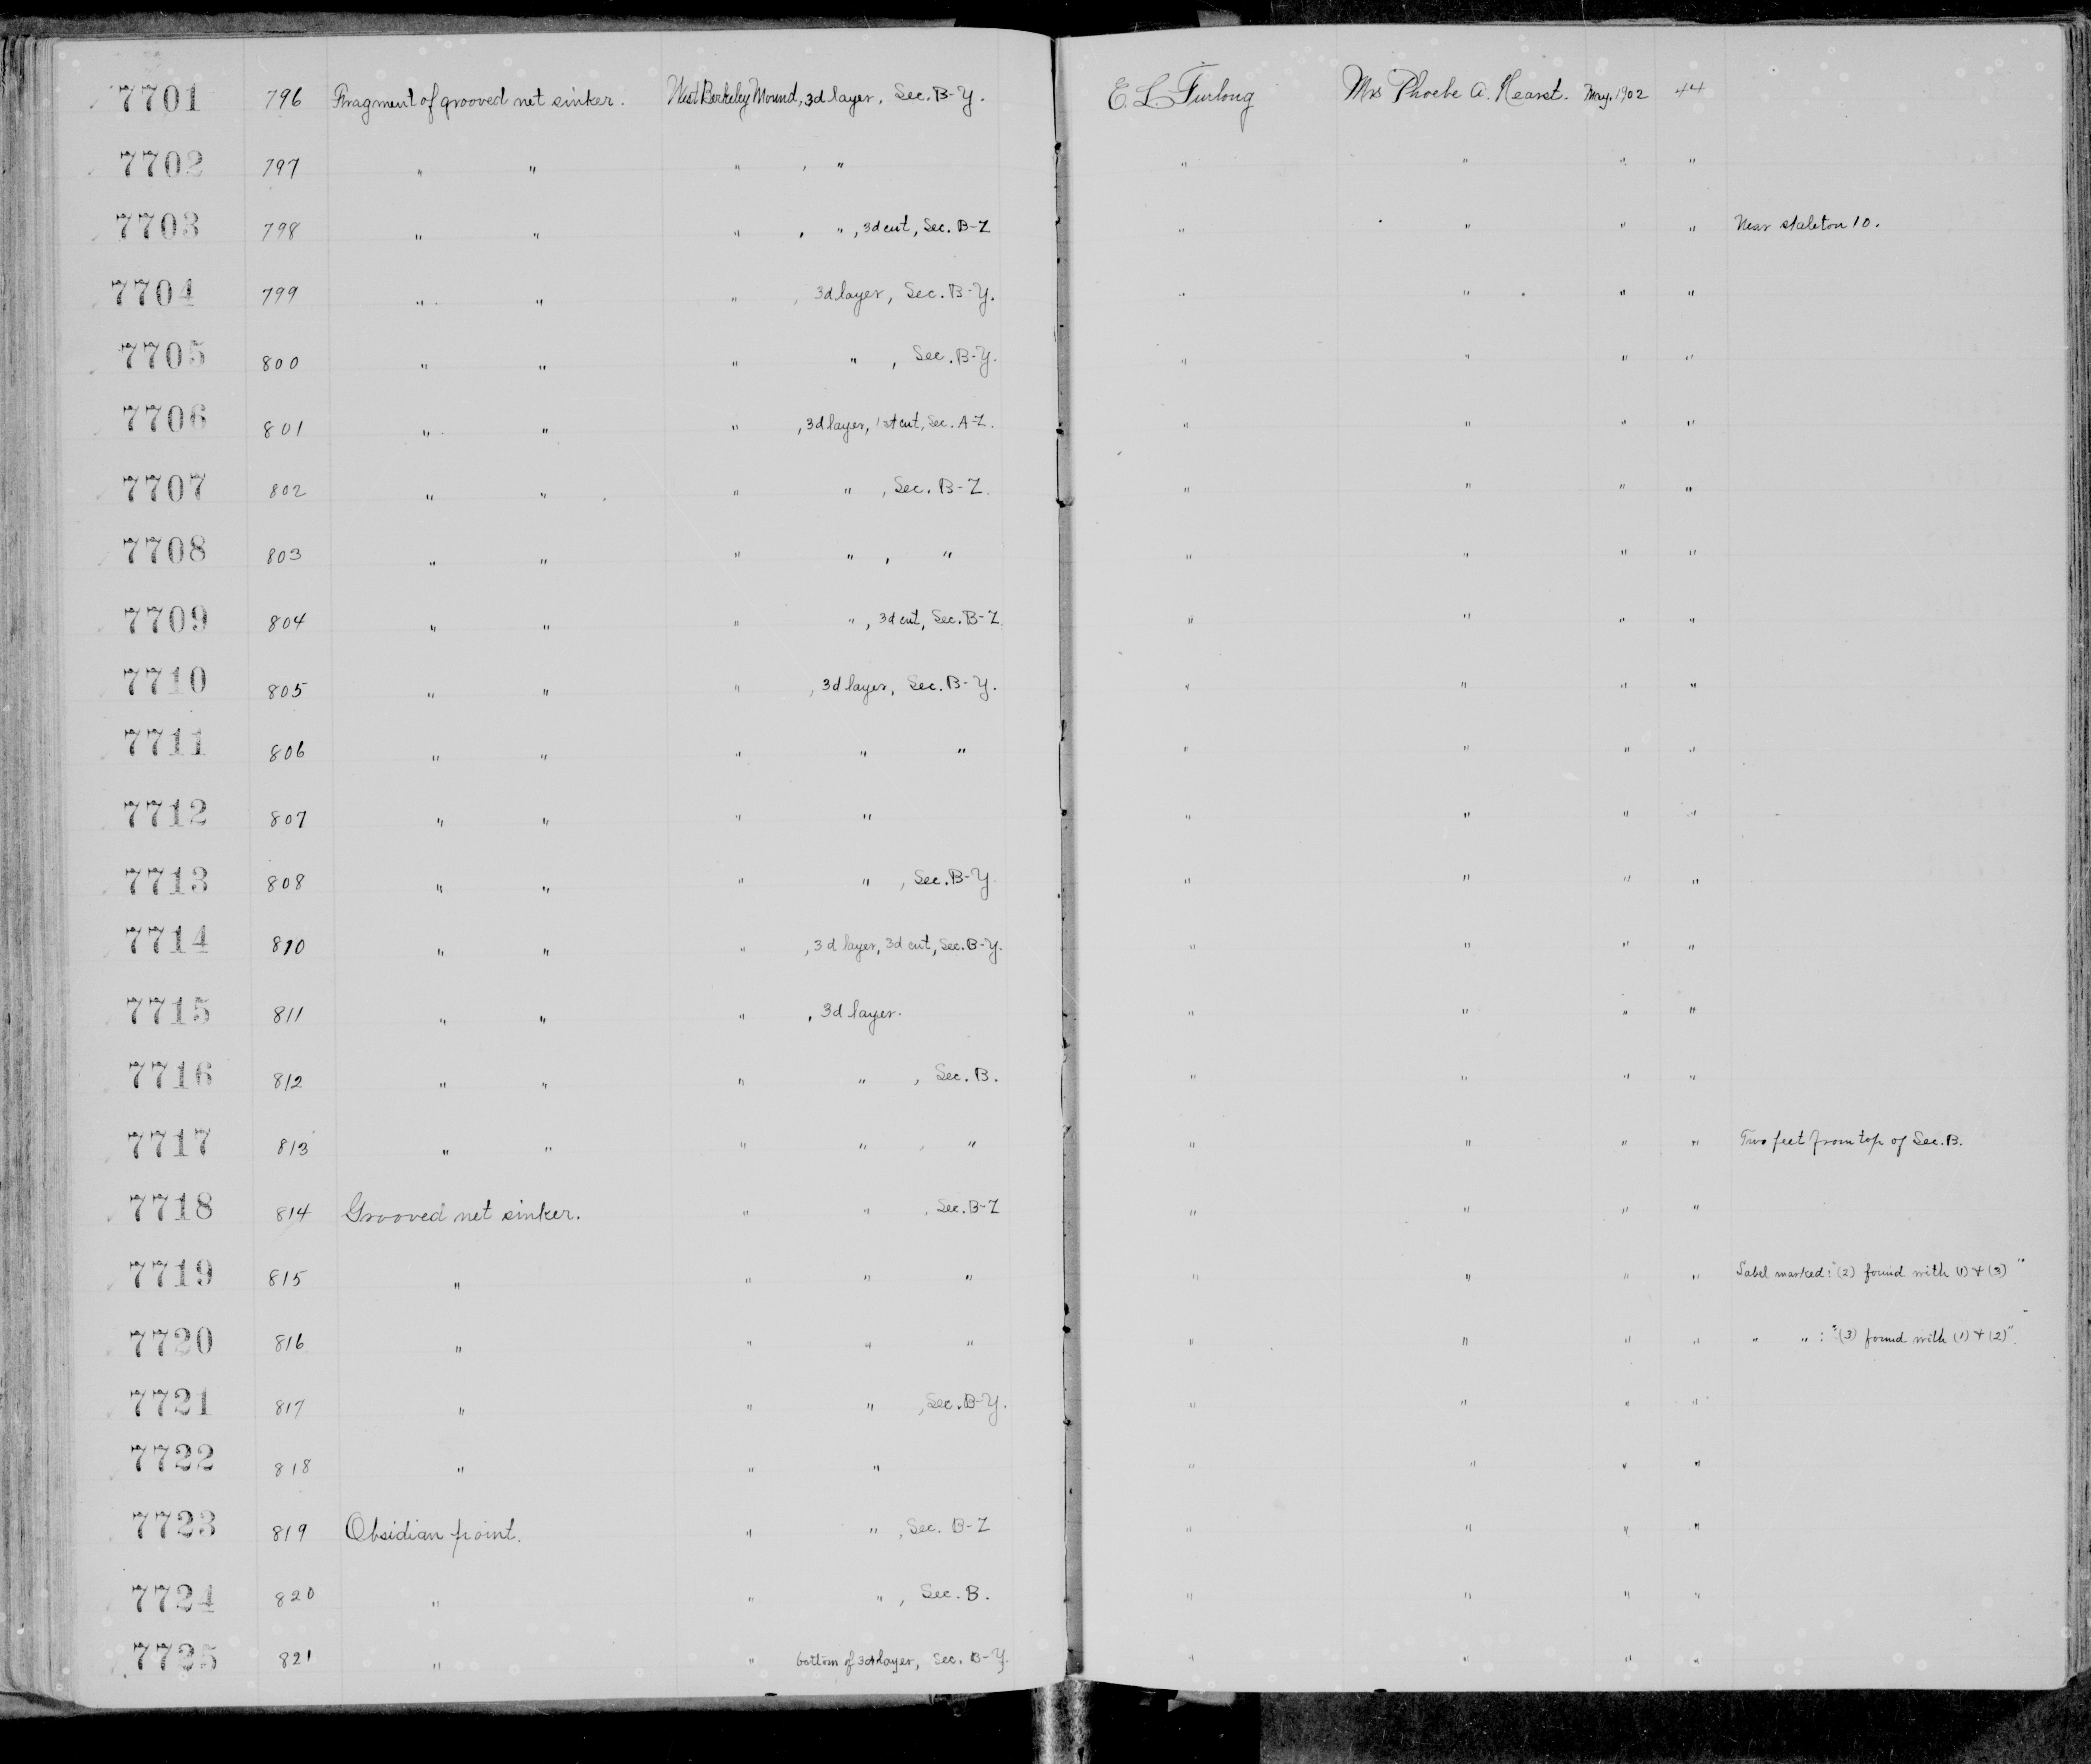 7701 796 Fragment of grooved net sinker. West Berkeley Mound, 3d layer, Sec. B-Y. E. L. Furlong Mrs Phoebe A. Hearst. May. 1902 44
7702 797 " " " , " " " " "
7703 798 " " " , " , 3d cut, Sec. B-Z " " " " Near skeleton 10.
7704 799 " " " , 3d layer, Sec. B-Y. " " " "
7705 800 " " " " , Sec. B-Y. " " " "
7706 801 " " " , 3d layer, 1st cut, Sec. A-Z. " " " "
7707 802 " " " " , Sec. B-Z. " " " "
7708 803 " " " " , " " " " "
7709 804 " " " " , 3d cut, Sec. B-Z. " " " "
7710 805 " " " , 3d layer, Sec. B-Y. " " " "
7711 806 " " " " " " " " "
7712 807 " " " " " " " "
7713 808 " " " " , Sec. B-Y. " " " "
7714 810 " " " , 3d layer, 3d cut, Sec. B-Y. " " " "
7715 811 " " " , 3d layer. " " " "
7716 812 " " " " , Sec. B. " " " "
7717 813 " " " " , " " " " " Two feet from top of Sec. B.
7718 814 Grooved net sinker. " " , Sec. B-Z " " " "
7719 815 " " " " " " " " Label marked: "(2) found with (1) + (3)"
7720 816 " " " " " " " " " " : "(3) found with (1) + (2)".
7721 817 " " " , Sec. B-Y. " " " "
7722 818 " " " " " " "
7723 819 Obsidian point. " " , Sec. B-Z " " " "
7724 820 " " " , Sec. B. " " " "
7725 821 " " bottom of 3d layer, Sec. B-Y. " " " "